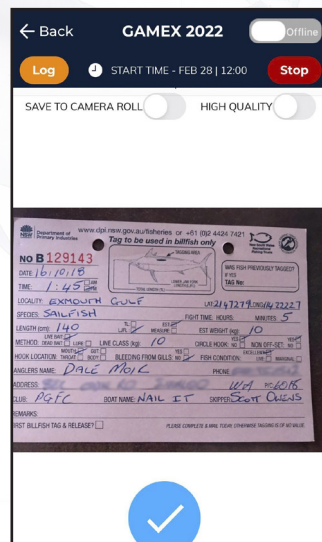 ← Back GAMEX 2022 Offline
Log START TIME - FEB 28 | 12:00 Stop
SAVE TO CAMERA ROLL HIGH QUALITY
NSW Department of Primary Industries www.dpi.nsw.gov.au/fisheries or +61 (0)2 4424 7421
Tag to be used in billfish only
NO B 129143
TAGGING AREA
DATE 16/10/18
WAS FISH PREVIOUSLY TAGGED?
IF YES
TIME: 1:45 AM PM
TAG No:
LOCALITY: EXMOUTH GULF LAT: 2147279 LONG: 1142222
SPECIES: SAILFISH FIGHT TIME: HOURS MINUTES 5
LENGTH (cm): 140 TL LJFL EST MEASURE EST WEIGHT (kg) 10
METHOD: LIVE BAIT DEAD BAIT LURE LINE CLASS (kg): 10 CIRCLE HOOK: YES NO NON OFF-SET: YES NO
HOOK LOCATION: MOUTH THROAT GUT BODY BLEEDING FROM GILLS: YES NO FISH CONDITION: EXCELLENT LIVE MARGINAL
ANGLERS NAME: DALE MOIR PHONE
ADDRESS: WA PC: 6018
CLUB: PGFC BOAT NAME: NAIL IT SKIPPER: SCOTT OWENS
REMARKS:
FIRST BILLFISH TAG & RELEASE? PLEASE COMPLETE & MAIL TODAY OTHERWISE TAGGING IS OF NO VALUE.